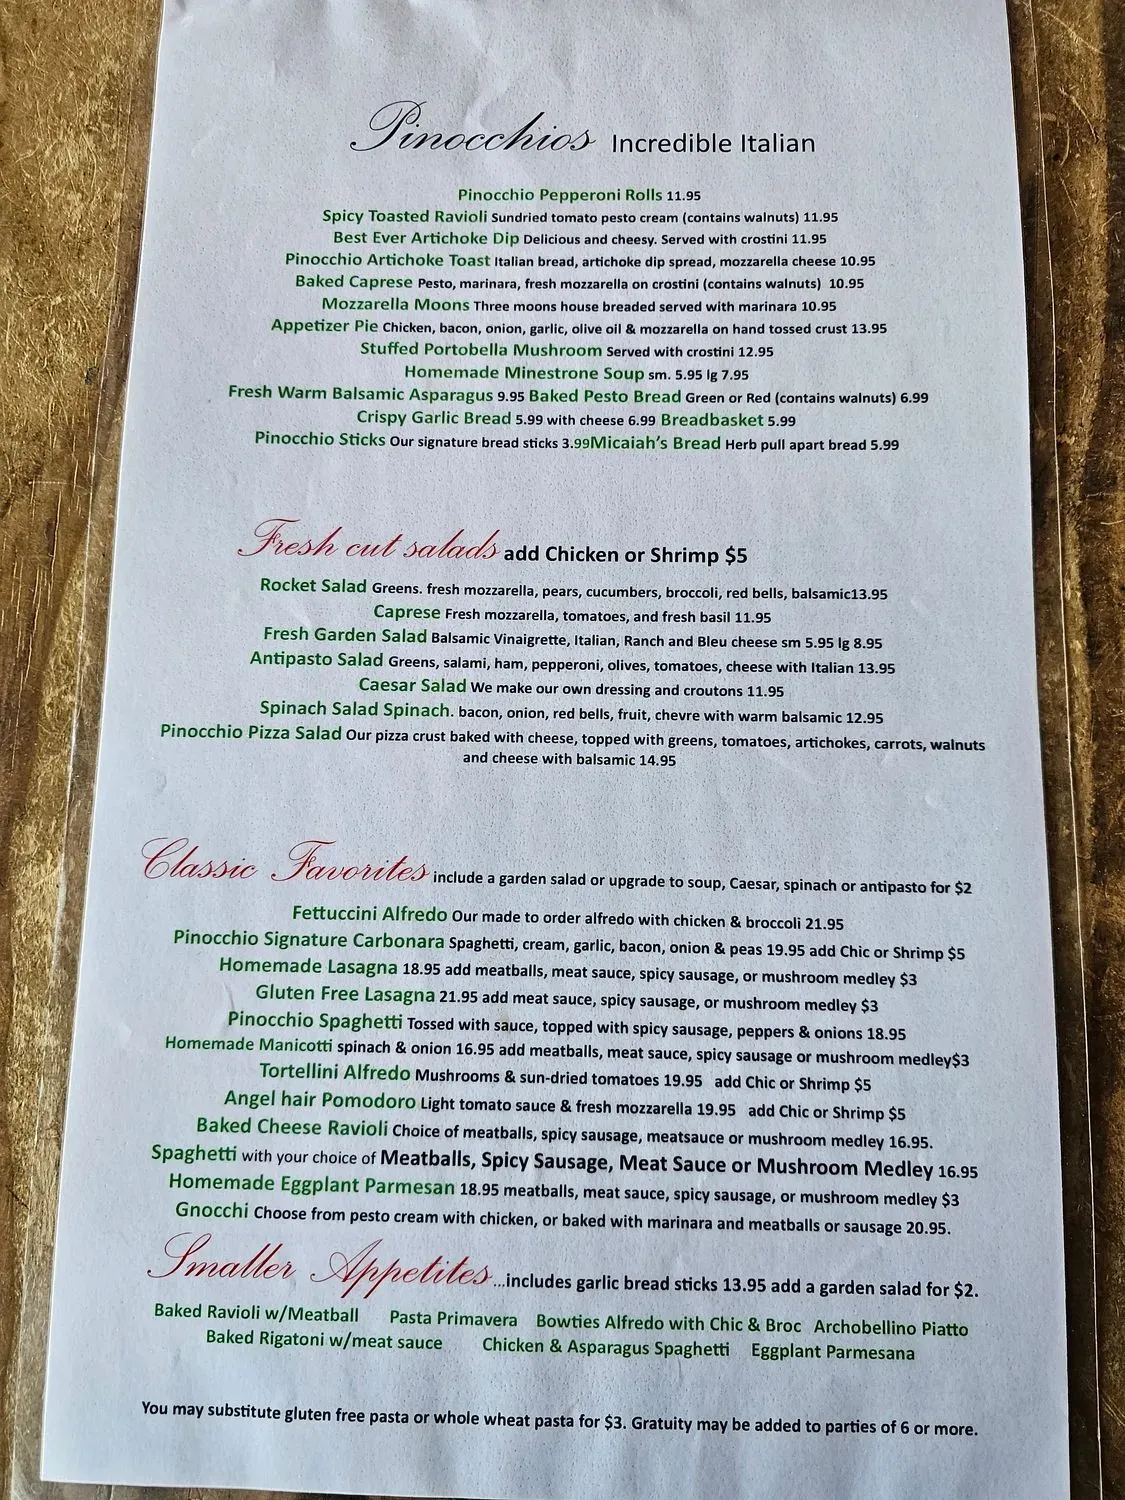 Pinocchios Incredible Italian
Pinocchio Pepperoni Rolls 11.95
Spicy Toasted Ravioli Sundried tomato pesto cream (contains walnuts) 11.95
Best Ever Artichoke Dip Delicious and cheesy. Served with crostini 11.95
Pinocchio Artichoke Toast Italian bread, artichoke dip spread, mozzarella cheese 10.95
Baked Caprese Pesto, marinara, fresh mozzarella on crostini (contains walnuts) 10.95
Mozzarella Moons Three moons house breaded served with marinara 10.95
Appetizer Pie Chicken, bacon, onion, garlic, olive oil & mozzarella on hand tossed crust 13.95
Stuffed Portobella Mushroom Served with crostini 12.95
Homemade Minestrone Soup sm. 5.95 lg 7.95
Fresh Warm Balsamic Asparagus 9.95 Baked Pesto Bread Green or Red (contains walnuts) 6.99
Crispy Garlic Bread 5.99 with cheese 6.99 Breadbasket 5.99
Pinocchio Sticks Our signature bread sticks 3.99Micaiah's Bread Herb pull apart bread 5.99
Fresh cut salads add Chicken or Shrimp $5
Rocket Salad Greens. fresh mozzarella, pears, cucumbers, broccoli, red bells, balsamic13.95
Caprese Fresh mozzarella, tomatoes, and fresh basil 11.95
Fresh Garden Salad Balsamic Vinaigrette, Italian, Ranch and Bleu cheese sm 5.95 lg 8.95
Antipasto Salad Greens, salami, ham, pepperoni, olives, tomatoes, cheese with Italian 13.95
Caesar Salad We make our own dressing and croutons 11.95
Spinach Salad Spinach. bacon, onion, red bells, fruit, chevre with warm balsamic 12.95
Pinocchio Pizza Salad Our pizza crust baked with cheese, topped with greens, tomatoes, artichokes, carrots, walnuts
and cheese with balsamic 14.95
Classic Favorites include a garden salad or upgrade to soup, Caesar, spinach or antipasto for $2
Fettuccini Alfredo Our made to order alfredo with chicken & broccoli 21.95
Pinocchio Signature Carbonara Spaghetti, cream, garlic, bacon, onion & peas 19.95 add Chic or Shrimp $5
Homemade Lasagna 18.95 add meatballs, meat sauce, spicy sausage, or mushroom medley $3
Gluten Free Lasagna 21.95 add meat sauce, spicy sausage, or mushroom medley $3
Pinocchio Spaghetti Tossed with sauce, topped with spicy sausage, peppers & onions 18.95
Homemade Manicotti spinach & onion 16.95 add meatballs, meat sauce, spicy sausage or mushroom medley$3
Tortellini Alfredo Mushrooms & sun-dried tomatoes 19.95 add Chic or Shrimp $5
Angel hair Pomodoro Light tomato sauce & fresh mozzarella 19.95 add Chic or Shrimp $5
Baked Cheese Ravioli Choice of meatballs, spicy sausage, meatsauce or mushroom medley 16.95.
Spaghetti with your choice of Meatballs, Spicy Sausage, Meat Sauce or Mushroom Medley 16.95
Homemade Eggplant Parmesan 18.95 meatballs, meat sauce, spicy sausage, or mushroom medley $3
Gnocchi Choose from pesto cream with chicken, or baked with marinara and meatballs or sausage 20.95.
Smaller Appetites...includes garlic bread sticks 13.95 add a garden salad for $2.
Baked Ravioli w/Meatball Pasta Primavera Bowties Alfredo with Chic & Broc Archobellino Piatto
Baked Rigatoni w/meat sauce Chicken & Asparagus Spaghetti Eggplant Parmesana
You may substitute gluten free pasta or whole wheat pasta for $3. Gratuity may be added to parties of 6 or more.